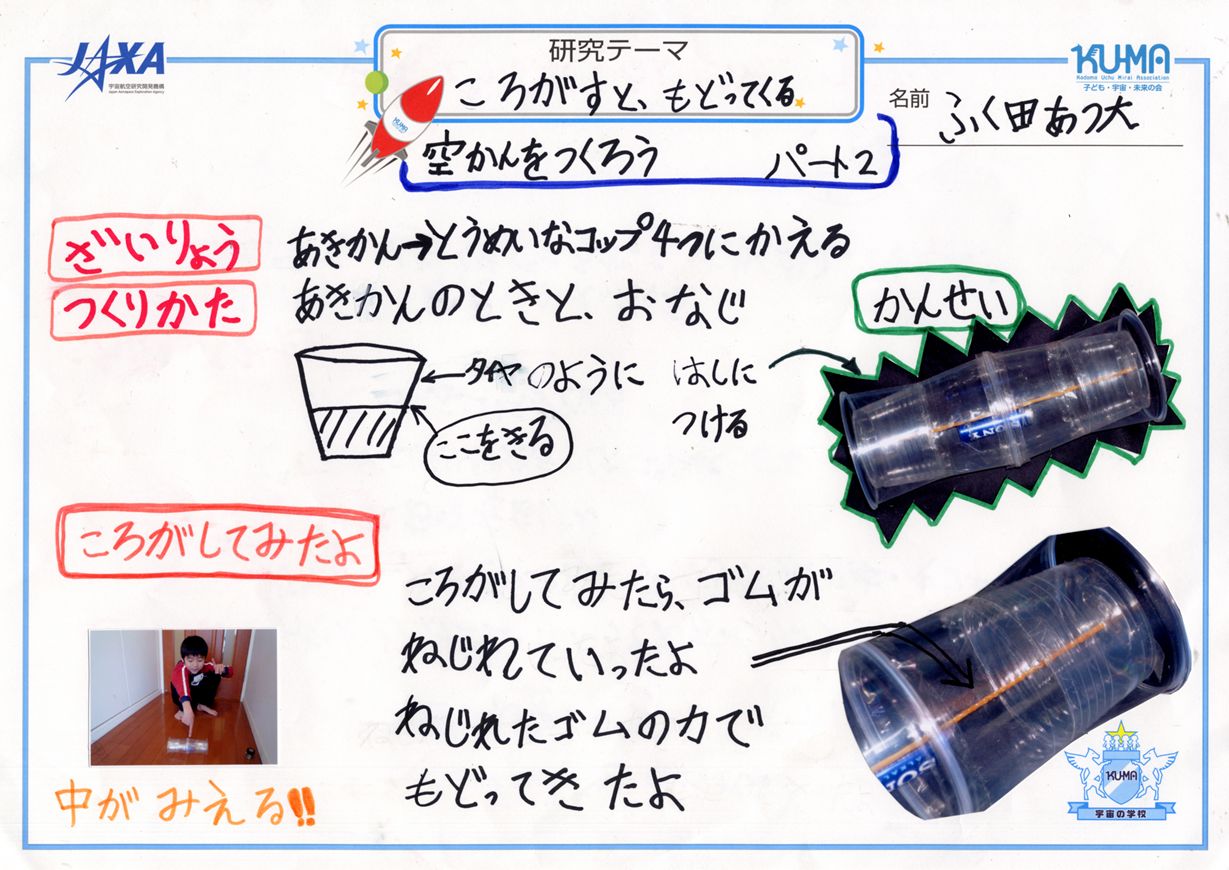 JAXA
宇宙航空研究開発機構
Japan Aerospace Exploration Agency
研究テーマ
ころがすと、もどってくる
空かんをつくろう パート2
KUMA
KUMA
Kodomo Uchu Mirai Association
子ども・宇宙・未来の会
名前 ふく田あつ大
ざいりょう あきかん→とうめいなコップ4つにかえる
つくりかた あきかんのときと、おなじ
かんせい
←タイヤのように はしに
つける
ここをきる
ころがしてみたよ
ころがしてみたら、ゴムが
ねじれていったよ
ねじれたゴムの力で
もどってきたよ
中がみえる!!
KUMA
宇宙の学校